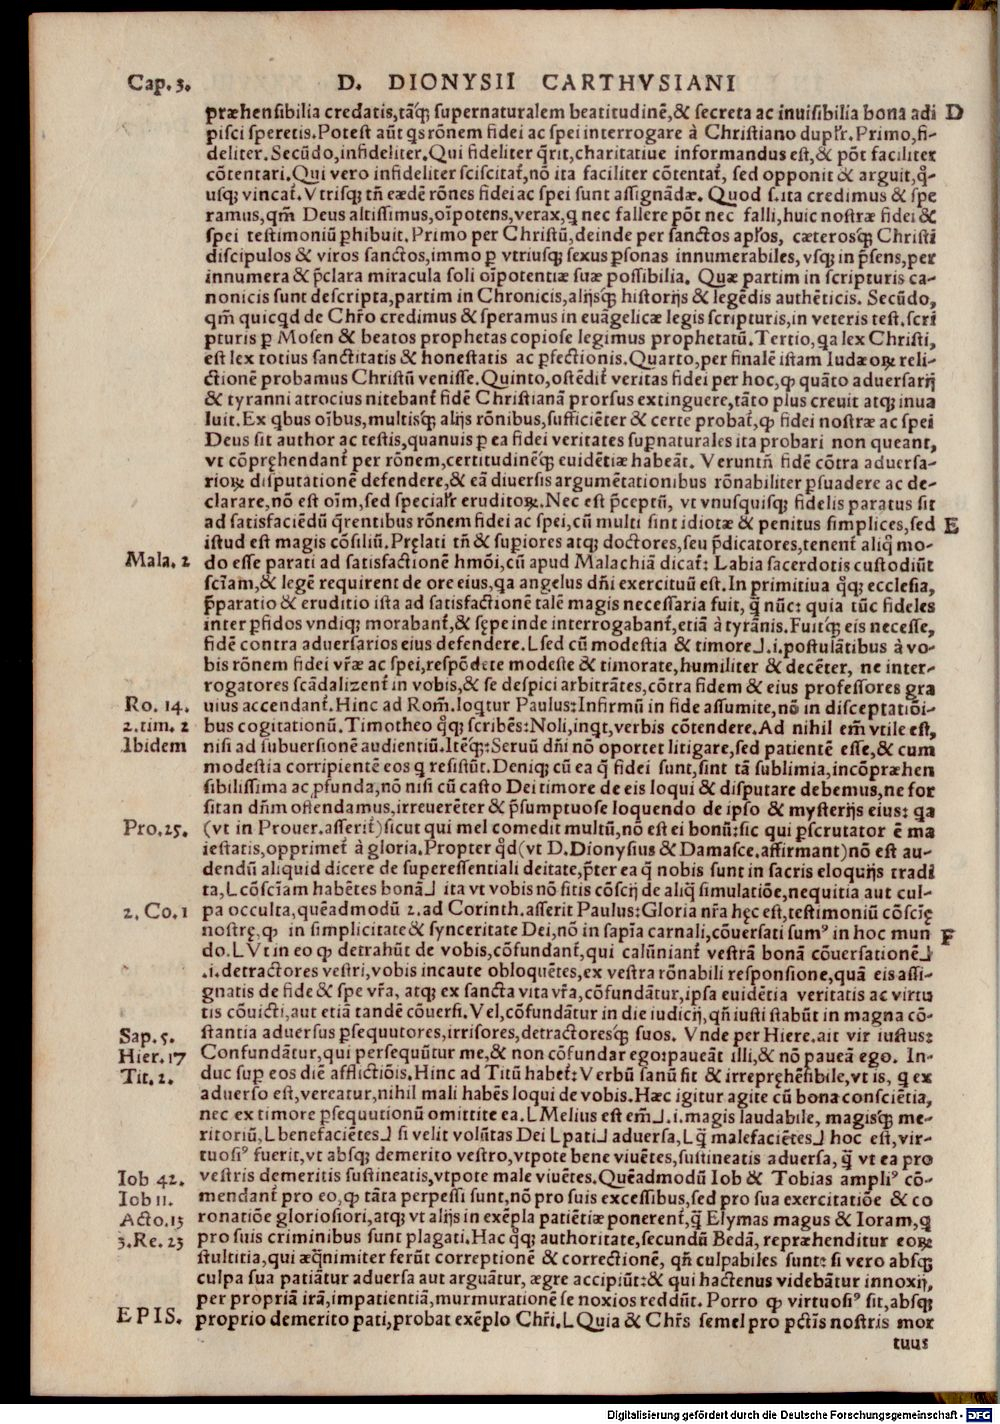 Cap. 3. D. DIONYSII CARTHVSIANI
præhensibilia credatis,tāq; supernaturalem beatitudinē,& secreta ac inuisibilia bona adi D
pisci speretis.Potest aūt qs rōnem fidei ac spei interrogare à Christiano dupłr. Primo,fi-
deliter. Secūdo,infideliter.Qui fideliter q̄rit,charitatiue informandus est,& pōt faciliter
cōtentari.Qui vero infideliter sciscitat̄,nō ita faciliter cōtentat̄, sed opponit & arguit,q̊-
usq; vincat̄.Vtrisq; tñ eædē rōnes fidei ac spei sunt assignādæ. Quod s.ita credimus & spe
ramus,qm̄ Deus altissimus,oīpotens,verax,q nec fallere pōt nec falli,huic nostræ fidei &
spei testimoniū ꝑhibuit.Primo per Christū,deinde per sanctos apłos, cæterosq; Christi
discipulos & viros sanctos,immo ꝑ vtriusq; sexus ꝑsonas innumerabiles, vsq; in p̄sens,per
innumera & p̄clara miracula soli oīpotentiæ suæ possibilia. Quæ partim in scripturis ca-
nonicis sunt descripta,partim in Chronicis,alijsq; historijs & legēdis authēticis. Secūdo,
qm̄ quicqd de Chr̄o credimus & speramus in euāgelicæ legis scripturis,in veteris test.scri
pturis ꝑ Mosen & beatos prophetas copiose legimus prophetatū.Tertio,qa lex Christi,
est lex totius sanctitatis & honestatis ac ꝑfectionis.Quarto,per finalē istam Iudæoꝝ reli-
ctionē probamus Christū venisse.Quinto,ostēdit̄ veritas fidei per hoc,ꝙ quāto aduersarij
& tyranni atrocius nitebant̄ fidē Christianā prorsus extinguere,tāto plus creuit atq; inua
luit.Ex qbus oībus,multisq; alijs rōnibus,sufficiēter & certe probat̄,ꝙ fidei nostræ ac spei
Deus sit author ac testis,quanuis ꝑ ea fidei veritates suꝑnaturales ita probari non queant,
vt cōpręhendant̄ per rōnem,certitudinēq; euidētiæ habeāt. Veruntñ fidē cōtra aduersa-
rioꝝ disputationē defendere,& eā diuersis argumētationibus rōnabiliter ꝑsuadere ac de-
clarare,nō est oīm,sed speciałr eruditoꝝ.Nec est p̄ceptū, vt vnusquisq; fidelis paratus sit
ad satisfaciēdū q̄rentibus rōnem fidei ac spei,cū multi sint idiotæ & penitus simplices,sed E
istud est magis cōsiliū.Pręlati tñ & suꝑiores atq; doctores,seu p̄dicatores,tenent̄ aliq̊ mo-
Mala. 2 do esse parati ad satisfactionē hmōi,cū apud Malachiā dicat̄: Labia sacerdotis custodiūt
scīam,& legē requirent de ore eius,qa angelus dñi exercituū est.In primitiua q̊q; ecclesia,
p̄paratio & eruditio ista ad satisfactionē talē magis necessaria fuit, q̄ nūc: quia tūc fideles
inter ꝑfidos vndiq; morabant̄,& sępe inde interrogabant̄,etiā à tyrānis.Fuitq; eis necesse,
fidē contra aduersarios eius defendere.⌊sed cū modestia & timore⌋.i.postulātibus à vo-
bis rōnem fidei vr̄æ ac spei,respōdete modeste & timorate,humiliter & decēter, ne inter-
rogatores scādalizent̄ in vobis,& se despici arbitrātes,cōtra fidem & eius professores gra
Ro. 14. uius accendant̄.Hinc ad Rom̄.loqtur Paulus:Infirmū in fide assumite,nō in disceptatiōi-
2.tim. 2 bus cogitationū. Timotheo q̊q; scribēs:Noli,inqt,verbis cōtendere.Ad nihil em̄ vtile est,
Ibidem nisi ad subuersionē audientiū.Itēq;:Seruū dñi nō oportet litigare,sed patientē esse,& cum
modestia corripientē eos q resistūt.Deniq; cū ea q̄ fidei sunt,sint tā sublimia,incōpræhen
sibilissima ac ꝓfunda,nō nisi cū casto Dei timore de eis loqui & disputare debemus,ne for
sitan dñm offendamus,irreuerēter & p̄sumptuose loquendo de ipso & mysterijs eius: qa
Pro.25. (vt in Prouer.asserit̄)sicut qui mel comedit multū,nō est ei bonū:sic qui ꝑscrutator ē ma
iestatis,opprimet̄ à gloria.Propter q̊d(vt D.Dionysius & Damasce.affirmant)nō est au-
dendū aliquid dicere de superessentiali deitate,p̄ter ea q̄ nobis sunt in sacris eloquijs tradi
ta,⌊cōscīam habētes bonā⌋ ita vt vobis nō sitis cōscij de aliq̄ simulatiōe,nequitia aut cul-
2. Co. 1 pa occulta,quēadmodū 2.ad Corinth.asserit Paulus:Gloria nr̄a hęc est,testimoniū cōscīę
nostrę,ꝙ in simplicitate & synceritate Dei,nō in sapīa carnali,cōuersati sumꝰ in hoc mun F
do.⌊Vt in eo ꝙ detrahūt de vobis,cōfundant̄,qui calūniant̄ vestrā bonā cōuersationē⌋
.i.detractores vestri,vobis incaute obloquētes,ex vestra rōnabili responsione,quā eis assi-
gnatis de fide & spe vr̄a, atq; ex sancta vita vr̄a,cōfundātur,ipsa euidētia veritatis ac virtu
tis cōuicti,aut etiā tandē cōuersi. Vel,cōfundātur in die iudicij,qn̄ iusti stabūt in magna cō-
Sap. 5. stantia aduersus ꝑsequutores,irrisores,detractoresq; suos. Vnde per Hiere.ait vir iustus:
Hier. 17 Confundātur,qui persequūtur me,& non cōfundar ego:paueāt illi,& nō paueā ego. In-
Tit. 2. duc suꝑ eos diē afflictiōis.Hinc ad Titū habet̄:Verbū sanū sit & irrepręhēsibile,vt is, q ex
aduerso est,vereatur,nihil mali habēs loqui de vobis.Hæc igitur agite cū bona consciētia,
nec ex timore ꝑsequutionū omittite ea.⌊Melius est em̄⌋.i.magis laudabile, magisq; me-
ritoriū,⌊benefaciētes⌋ si velit volūtas Dei ⌊pati⌋ aduersa,⌊q̄ malefaciētes⌋ hoc est,vir-
tuosiꝰ fuerit,vt absq; demerito vestro,vtpote bene viuētes,sustineatis aduersa, q̄ vt ea pro
Iob 42. vestris demeritis sustineatis,vtpote male viuētes.Quēadmodū Iob & Tobias ampliꝰ cō-
Iob 11. mendant̄ pro eo,ꝙ tāta perpessi sunt,nō pro suis excessibus,sed pro sua exercitatiōe & co
Acto.13 ronatiōe gloriosiori,atq; vt alijs in exēpla patiētiæ ponerent̄,q̄ Elymas magus & Ioram,q
3.Re. 23 pro suis criminibus sunt plagati.Hac q̊q; authoritate,secundū Bedā, repræhenditur eoꝝ
stultitia,qui æq̄nimiter ferūt correptionē & correctionē, qn̄ culpabiles sunt: si vero absq;
culpa sua patiātur aduersa aut arguātur, ægre accipiūt:& qui hactenus videbātur innoxij,
per propriā irā,impatientiā,murmurationē se noxios reddūt. Porro ꝙ virtuosiꝰ sit,absq;
EPIS. proprio demerito pati,probat exēplo Chr̄i.⌊Quia & Chr̄s semel pro pctīs nostris mor
tuus
Digitalisierung gefördert durch die Deutsche Forschungsgemeinschaft - DFG